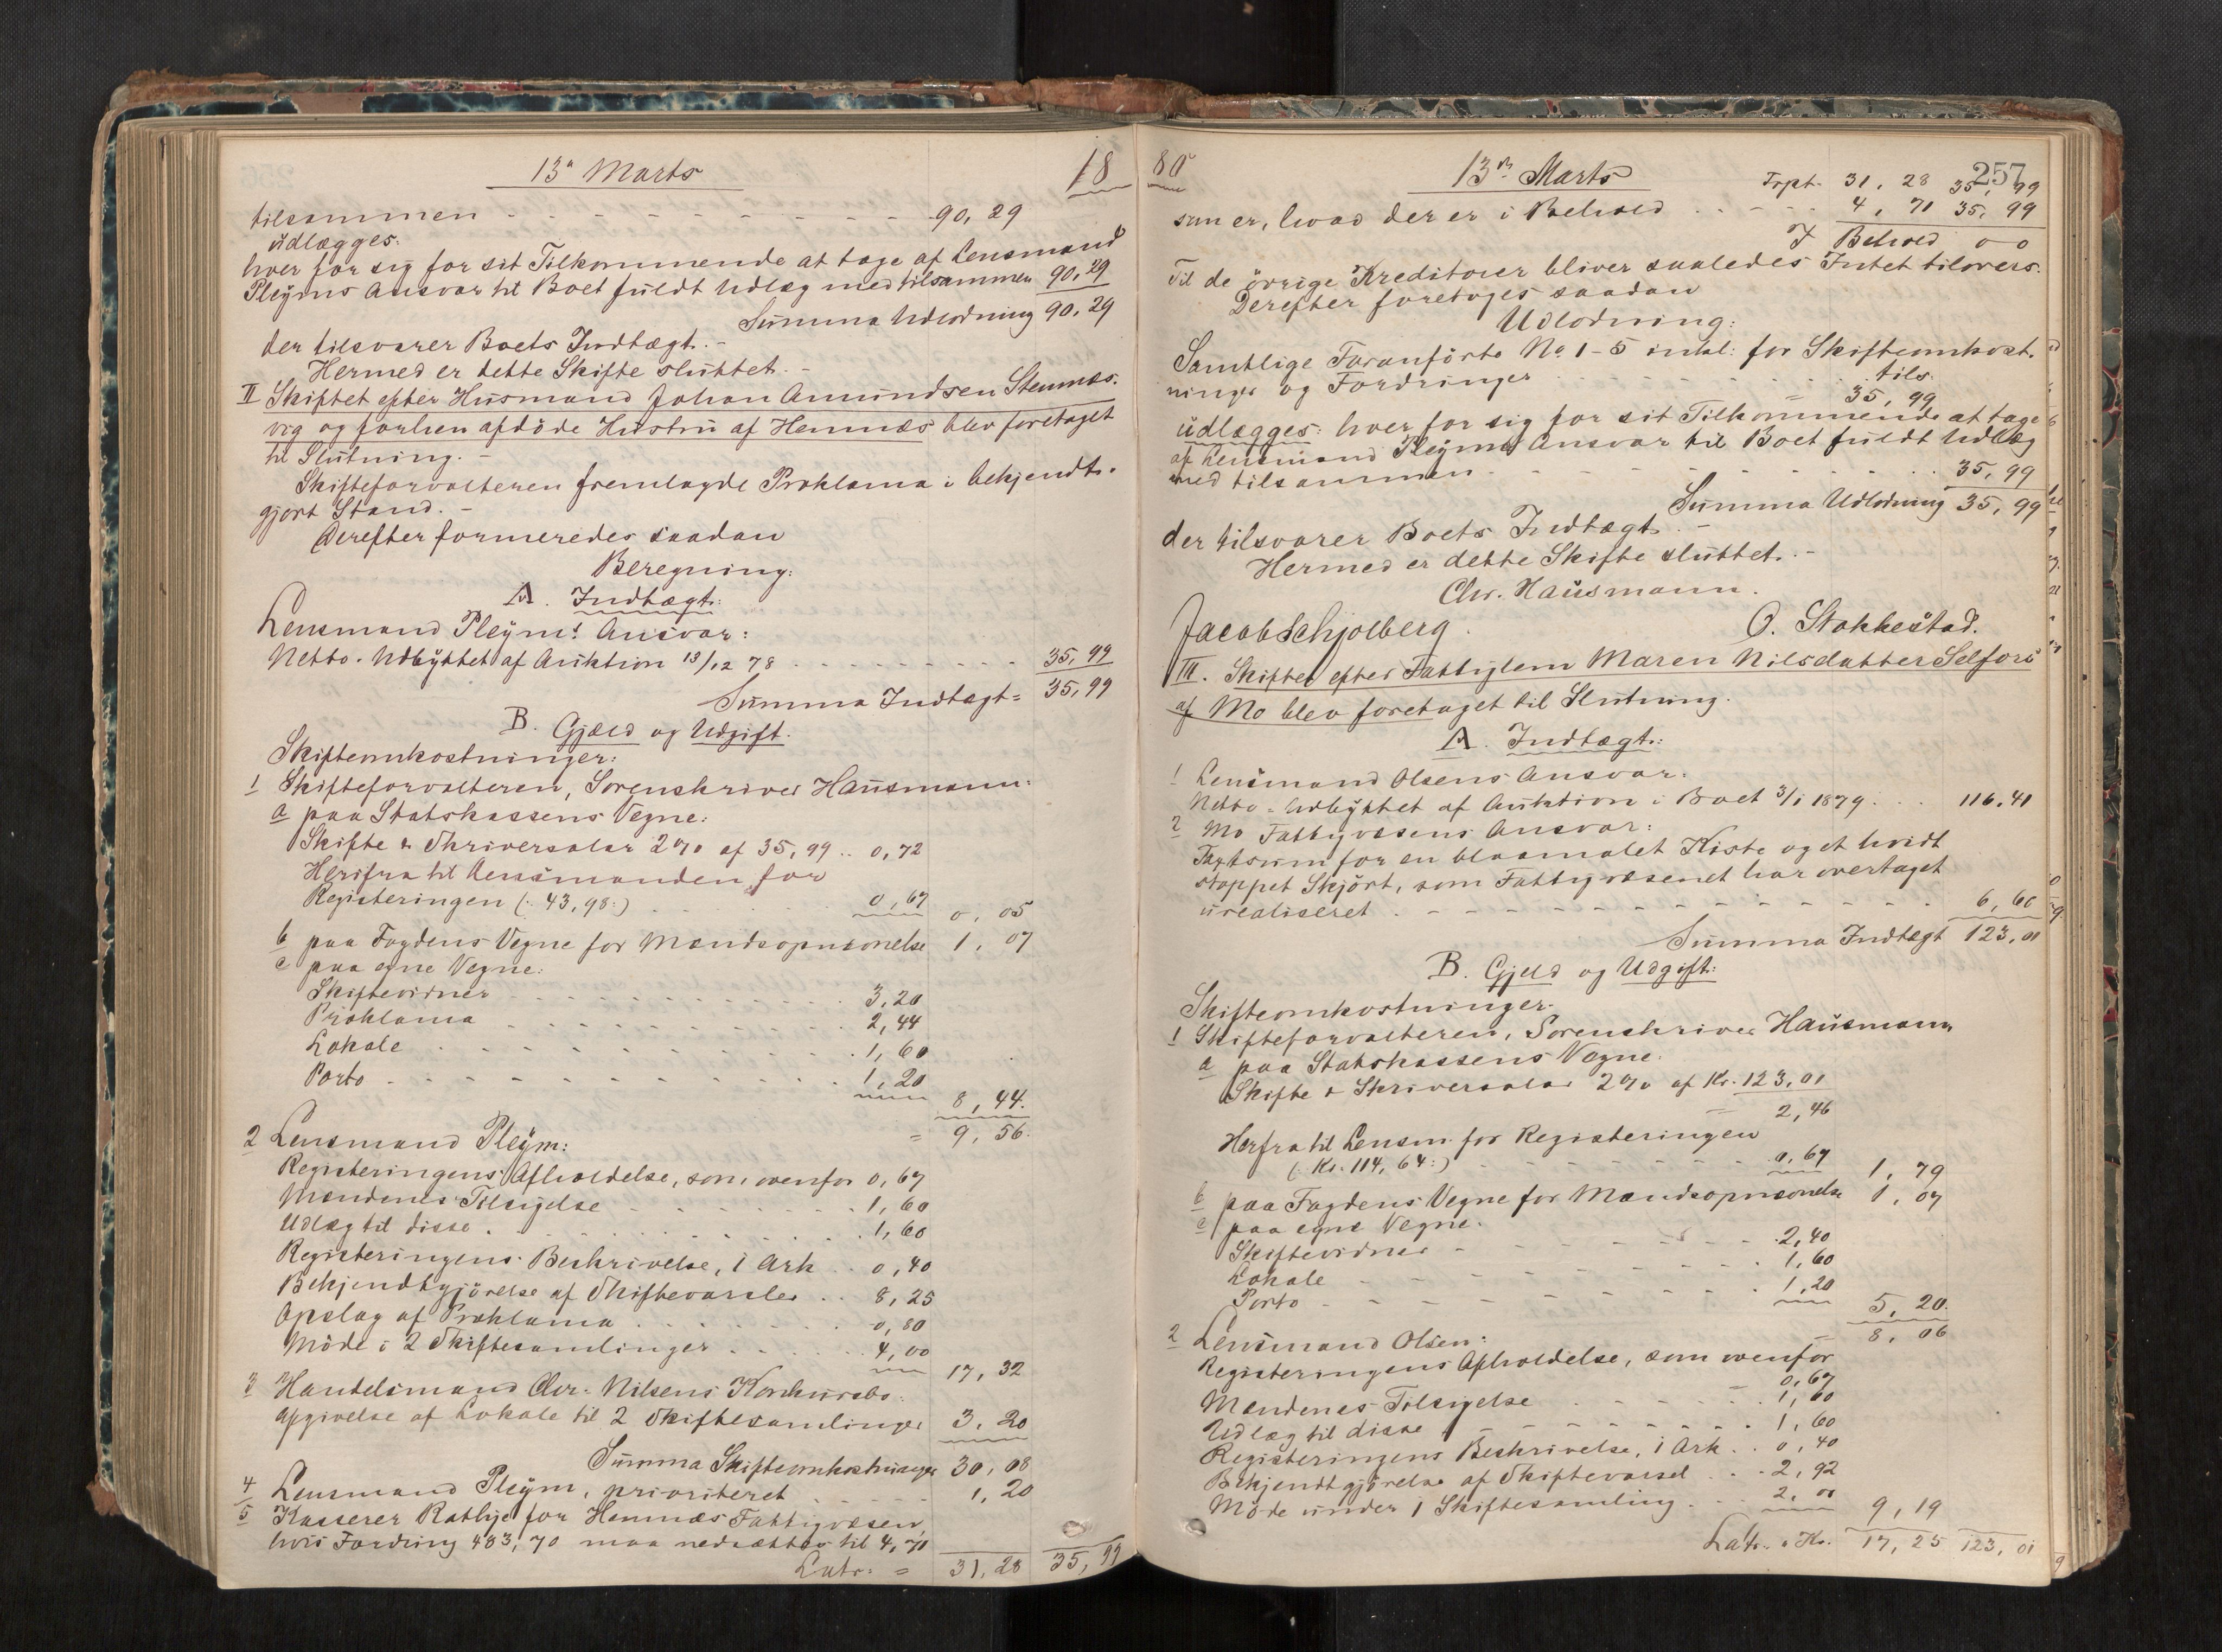 13de Marts
18
tilsammen - - - - - - - - - - - 90, 29
udlægges:
hver for sig for sit Tilkommende at tage af Lensmand
Pleÿms Ansvar til Boet fuldt Udlæg med tilsammen 90, 29
Summa Udlodning 90, 29
der tilsvarer Boets Indtægt. -
Hermed er dette Skifte sluttet. -
II Skiftet efter Husmand Johan Amundsen Stennes-
vig og forhen afdöde Hustru af Hemnæs blev foretaget
til Slutning. -
Skifteforvalteren fremlagde Proklama i bekjendt-
gjort Stand. -
Derefter formeredes saadan
Beregning:
A. Indtægt:
Lensmand Pleÿms Ansvar:
Netto-Udbÿttet af Auktion 13/12 78 - - - - - - - 35, 99
Summa Indtægt = 35, 99
B. Gjæld og Udgift.
Skifteomkostninger:
1 Skifteforvalteren, Sorenskriver Hausmann:
a paa Statskassens Vegne:
Skifte & Skriversalær 2% af 35, 99 .. 0, 72
Herifra til Lensmanden for
Registeringen (: 43, 98:) . . . 0, 67 0, 05
b paa Fogdens Vegne for Mændsopnævnelse 1, 07
c paa egne Vegne:
Skiftevidner - - - - - - - - 3, 20
Proklama - - - - - - - - 2, 44
Lokale - - - - - - - - 1, 60
Porto - - - - - - - - 1, 20
8, 44.
= 9, 56.
2 Lensmand Pleÿm:
Registeringens Afholdelse, som ovenfor 0, 67
Mændenes Tilsigelse - - - - - 1, 60
Udlæg til disse . . . . . . . 1, 60
Registeringens Beskrivelse, 1 Ark . . 0, 40
Bekjendtgjörelse af Skiftevarsler . . 8, 25
Opslag af Proklama . . . . . . 0, 80
Möde i 2 Skiftesamlinger . . . . . 4, 00
17, 32
3 Handelsmand Chr. Nilsens Konkursbo.
Afgivelse af Lokale til 2 Skiftesamlinger 3, 20
Summa Skifteomkostninger 30, 08
4 Lensmand Pleÿm, prioriteret . . . . . 1, 20
5 Kasserer Rathje for Hemnæs Fattigvæsen,
hvis Fordring 483, 70 maa nedsættes til 4, 71
Latr: = 31, 28 35, 99
80
13de Marts
257
Trpt. 31, 28 35, 99
som er, hvad der er i Behold . . . . . 4, 71 35, 99
I Behold 0 0
Til de övrige Kreditorer bliver saaledes Intet tilovers.
Derefter foretages saadan
Udlodning:
Samtlige Foranförte No 1-5 inkl: for Skifteomkost-
ninger og Fordringer . . . . . . . . . . tils.
= 35, 99
udlægges: hver for sig for sit Tilkommende at tage
af Lensmand Pleÿms Ansvar til Boet fuldt Udlæg
med tilsammen - - - - - - - - - - - 35, 99
Summa Udlodning 35, 99
der tilsvarer Boets Indtægt. -
Hermed er dette Skifte sluttet. -
Chr. Hausmann.
Jacob Schjolberg. O. Stokkestad.
III. Skiftet efter Fattiglem Maren Nilsdatter Selfors
af Mo blev foretaget til Slutning.
A. Indtægt:
1 Lensmand Olsens Ansvar:
Netto-Udbÿttet af Auktion i Boet 3/1 1879 . . . 116, 41
2 Mo Fattigvæsens Ansvar:
Taxtsum for en blaamalet Kiste og et hvidt
stoppet Skjört, som Fattigvæsenet har overtaget
urealiseret . - - - - - - - - - - - 6, 60
Summa Indtægt 123, 01
B. Gjæld og Udgift:
Skifteomkostninger.
1 Skifteforvalteren, Sorenskriver Hausmann
a paa Statskassens Vegne:
Skifte & Skriversalær 2% af Kr. 123, 01
= 2, 46
Herfra til Lensm. for Registeringen
(: Kr. 114, 64:) - - - - - - - 0, 67 1, 79
b paa Fogdens Vegne for Mændsopnævnelse 1, 07
c paa egne Vegne:
Skiftevidner - - - - - - - - 2, 40
Lokale - - - - - - - - 1, 60
Porto - - - - - - - - 1, 20
5, 20.
= 8, 06
2 Lensmand Olsen:
Registeringens Afholdelse, som ovenfor
- 0, 67
Mændenes Tilsigelse . . . . . . 1, 60
Udlæg til disse - - - - - - - 1, 60
Registeringens Beskrivelse, 1 Ark . . 0, 40
Bekjendtgjörelse af Skiftevarsel . . . 2, 92
Möde under 1 Skiftesamling . . . 2, 00
9, 19
Latr. i Kr. 17, 25 123, 01